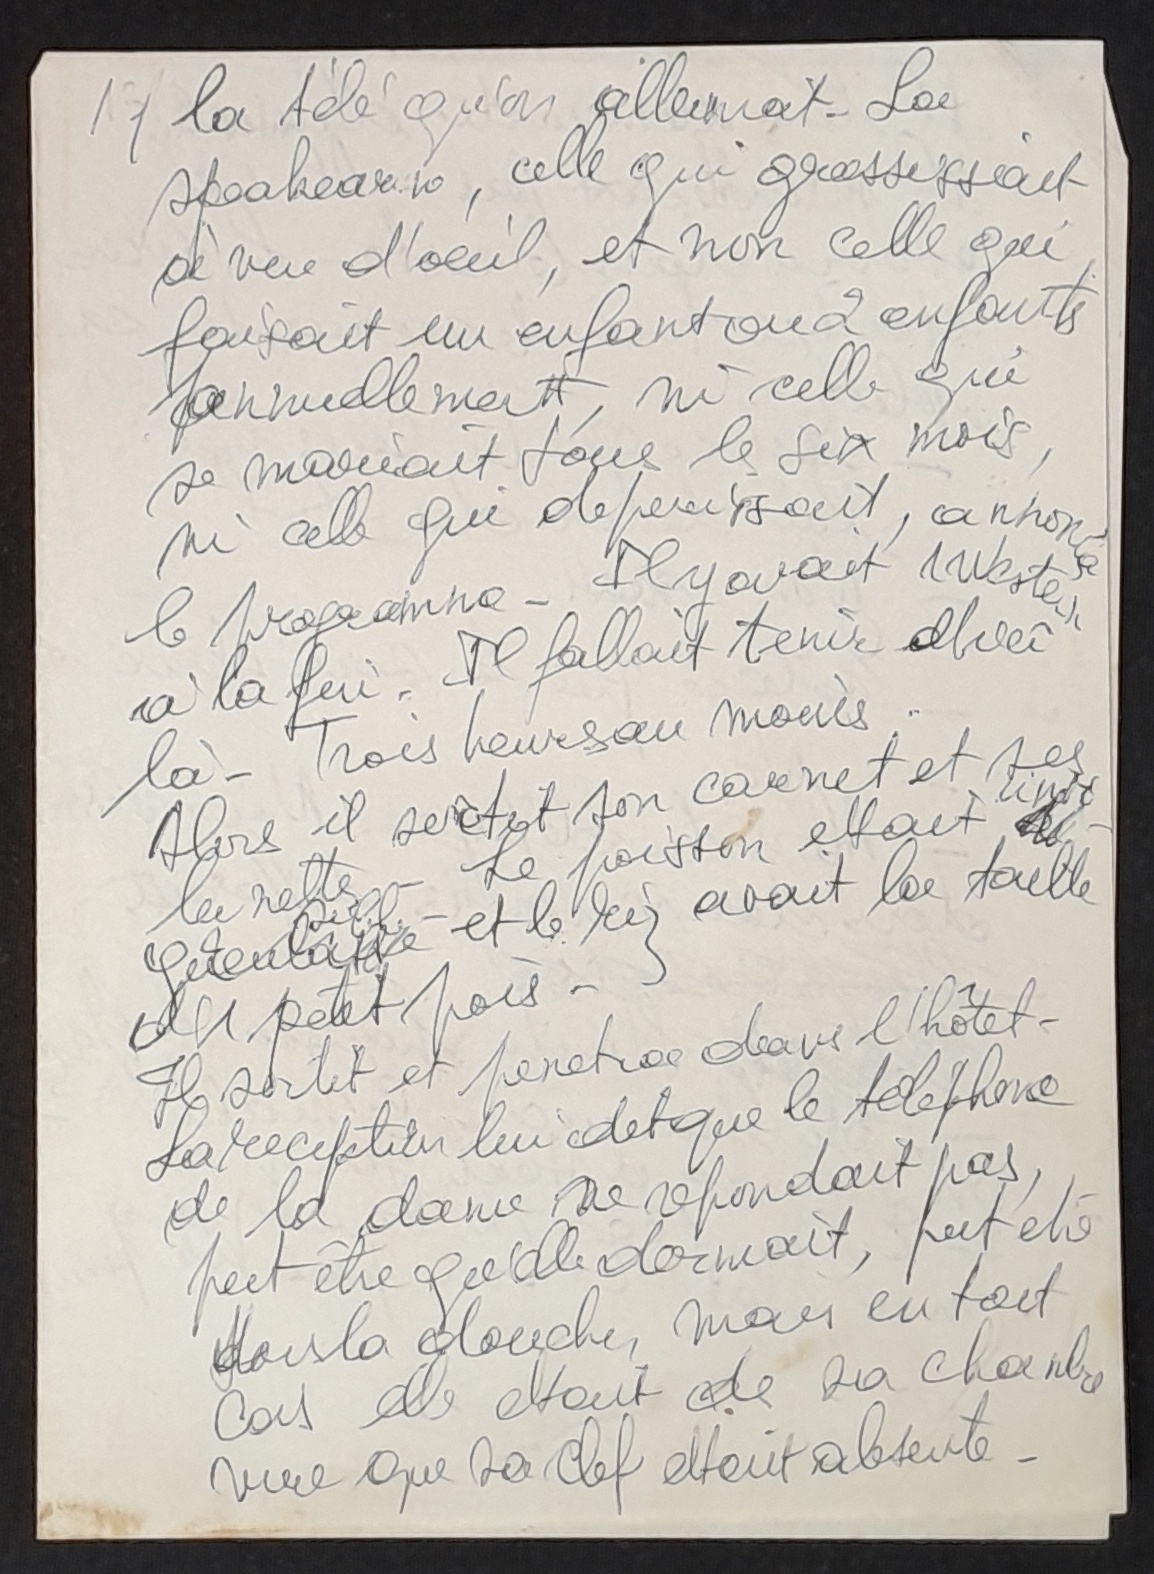 17 la télé qu'on allumait - La
speakerine, celle qui grossissait
à vue d'oeil, et non celle qui
faisait un enfant ou 2 enfants
annuellement, ni celle qui
se mariait tous les six mois,
ni celle qui deperissait, annonça
le programme - Il y avait 1 Western
à la fin. Il fallait tenir d'ici
là - Trois heures au moins.
Alors il sortit son carnet et ses
lunettes - Le poisson etait
- et le riz avait la taille
des petit pois -
Il sortit et penetra dans l'hôtel -
La reception lui dit que le téléphone
de la dame ne repondait pas,
peut être qu'elle dormait, peut etre
dans la douche, mais en tout
cas elle etait de sa chambre
vue que sa clef etait absente -